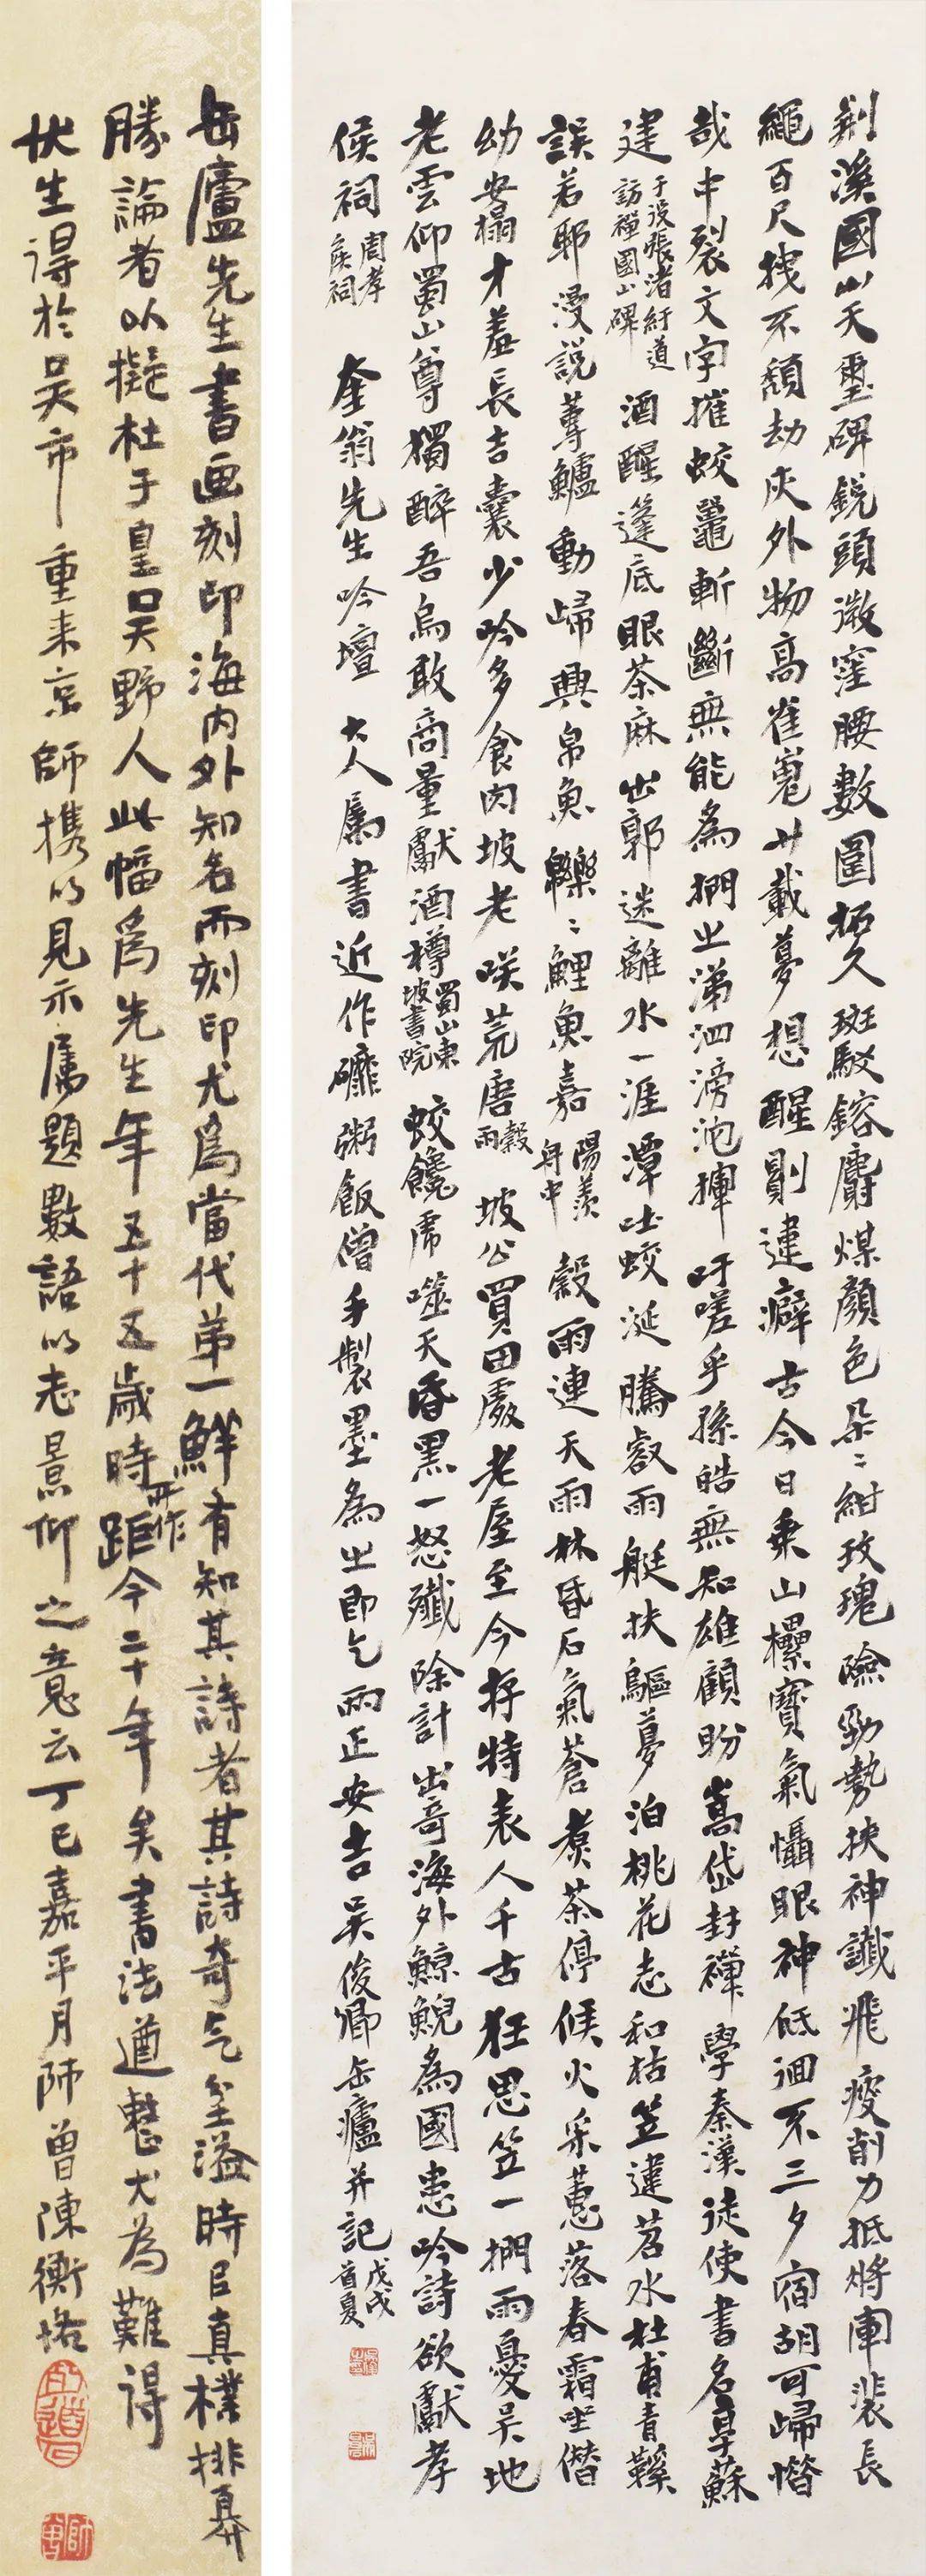 荆溪國山天璽碑銳頭微窪腰數圍拓久斑駁鎔麝煤顏色朵朵紺玫瑰險勁勢挾神讖飛瘦削力抵將軍裴長
繩百尺拽不頹劫灰外物高崔嵬廿載夢想醒則違癖古今日乘山欙寶氣懾眼神低徊不三夕宿胡可歸惜
哉中裂文字摧蛟鼉斬斷無能為捫之涕泗滂沱揮吁嗟乎孫皓無知雄顧盼嵩岱封禪學秦漢徒使書名皐蘇
建
于役張渚紆道
訪禪國山碑
酒醒篷底眼茶麻出郭迷離水一涯潭吐蛟涎騰 雨艇扶鷗夢泊桃花志和枯笠違苕水杜甫青鞵
誤若耶漫說蓴鱸動歸興帛魚轢轢鯉魚嘉
陽羨
舟中
穀雨連天雨林昏石氣蒼煮茶停候火采蕙落春霜坐偕
幼安榻才羞長吉囊少吟多食肉坡老咲荒唐
穀
雨
坡公買田處老屋至今存特表人千古狂思笠一捫雨憂吳地
老雲仰蜀山尊獨醉吾烏敢商量獻酒樽
蜀山東
坡書院
蛟饞虎噬天昏黑一怒殲除計出奇海外鯨鯢為國患吟詩欲獻孝
侯祠
周孝
侯祠
奎翁先生吟壇 大人屬書近作礦粥飯僧手製墨為之即乞兩正安吉吳俊卿缶廬并記
戊戌
首夏
缶廬先生書画刻印海内外知名而刻印尤爲當代第一鮮有知其詩者其詩奇气坌溢時㠯真樸排奡
勝論者以擬杜于皇吳野人此幅爲先生年五十五歲時所作距今二十年矣書法遒整尤為難得
伏生得於吳市重来京師携以見示屬題數語以志景仰之意云丁巳嘉平月師曾陳衡恪
師曾